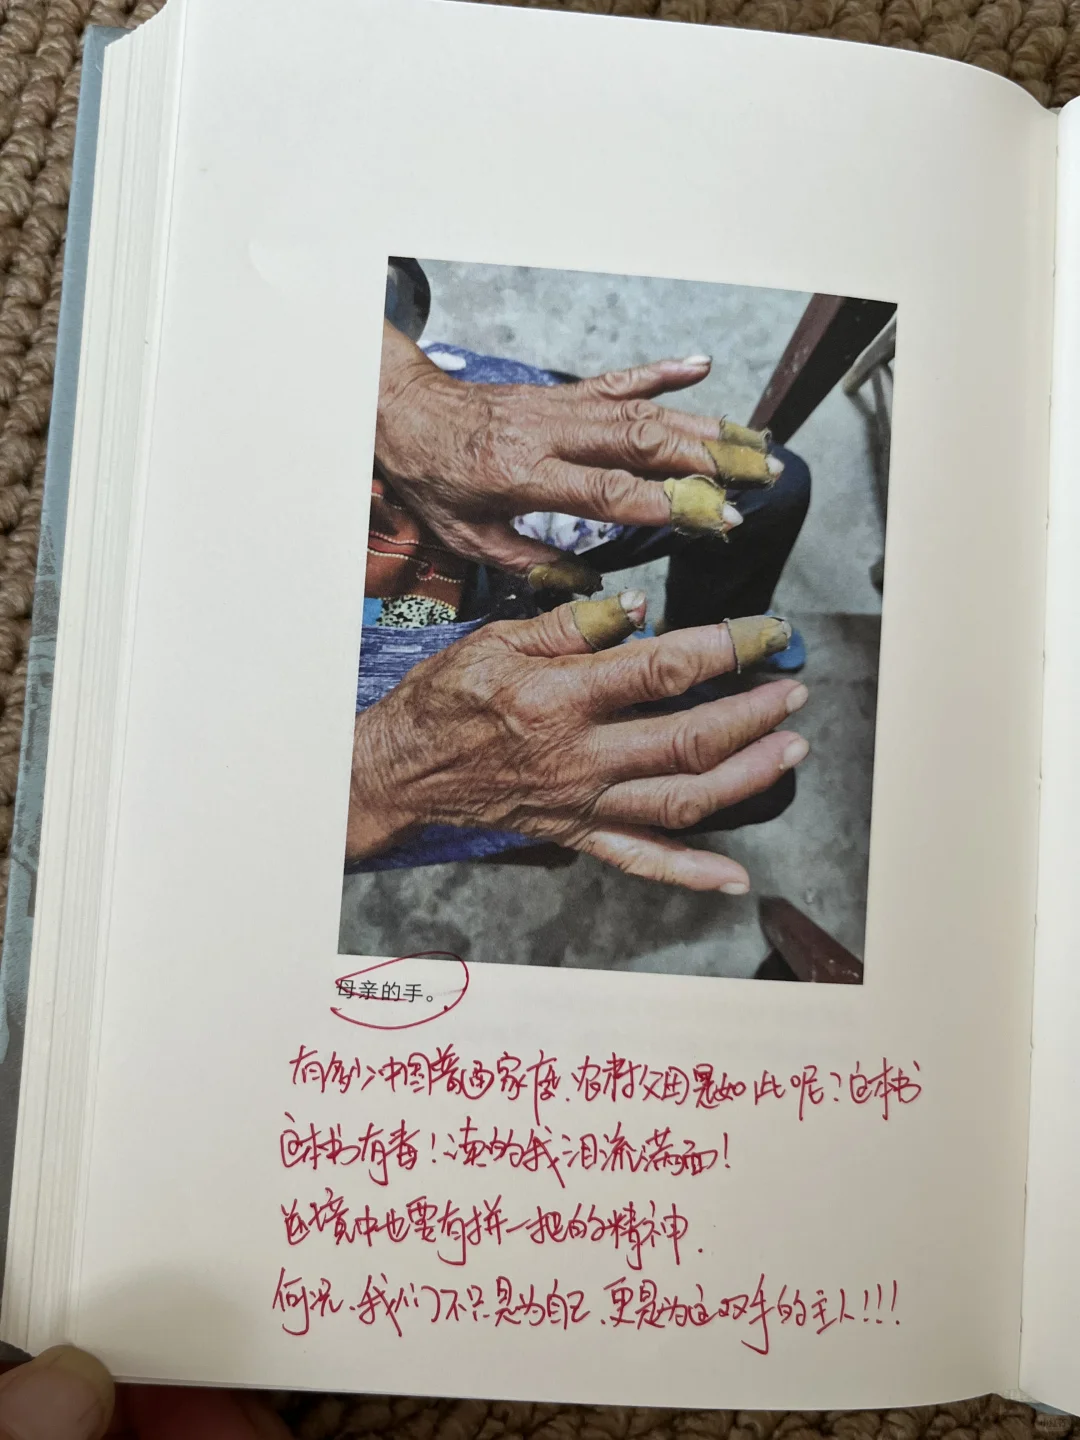 母亲的手。
有多少中国普通家庭、农村父母是如此呢？这本书
这本书有毒！读的我泪流满面！
逆境中也要有拼一把的精神.
何况、我们不只是为自己、更是为这双手的主人！！！